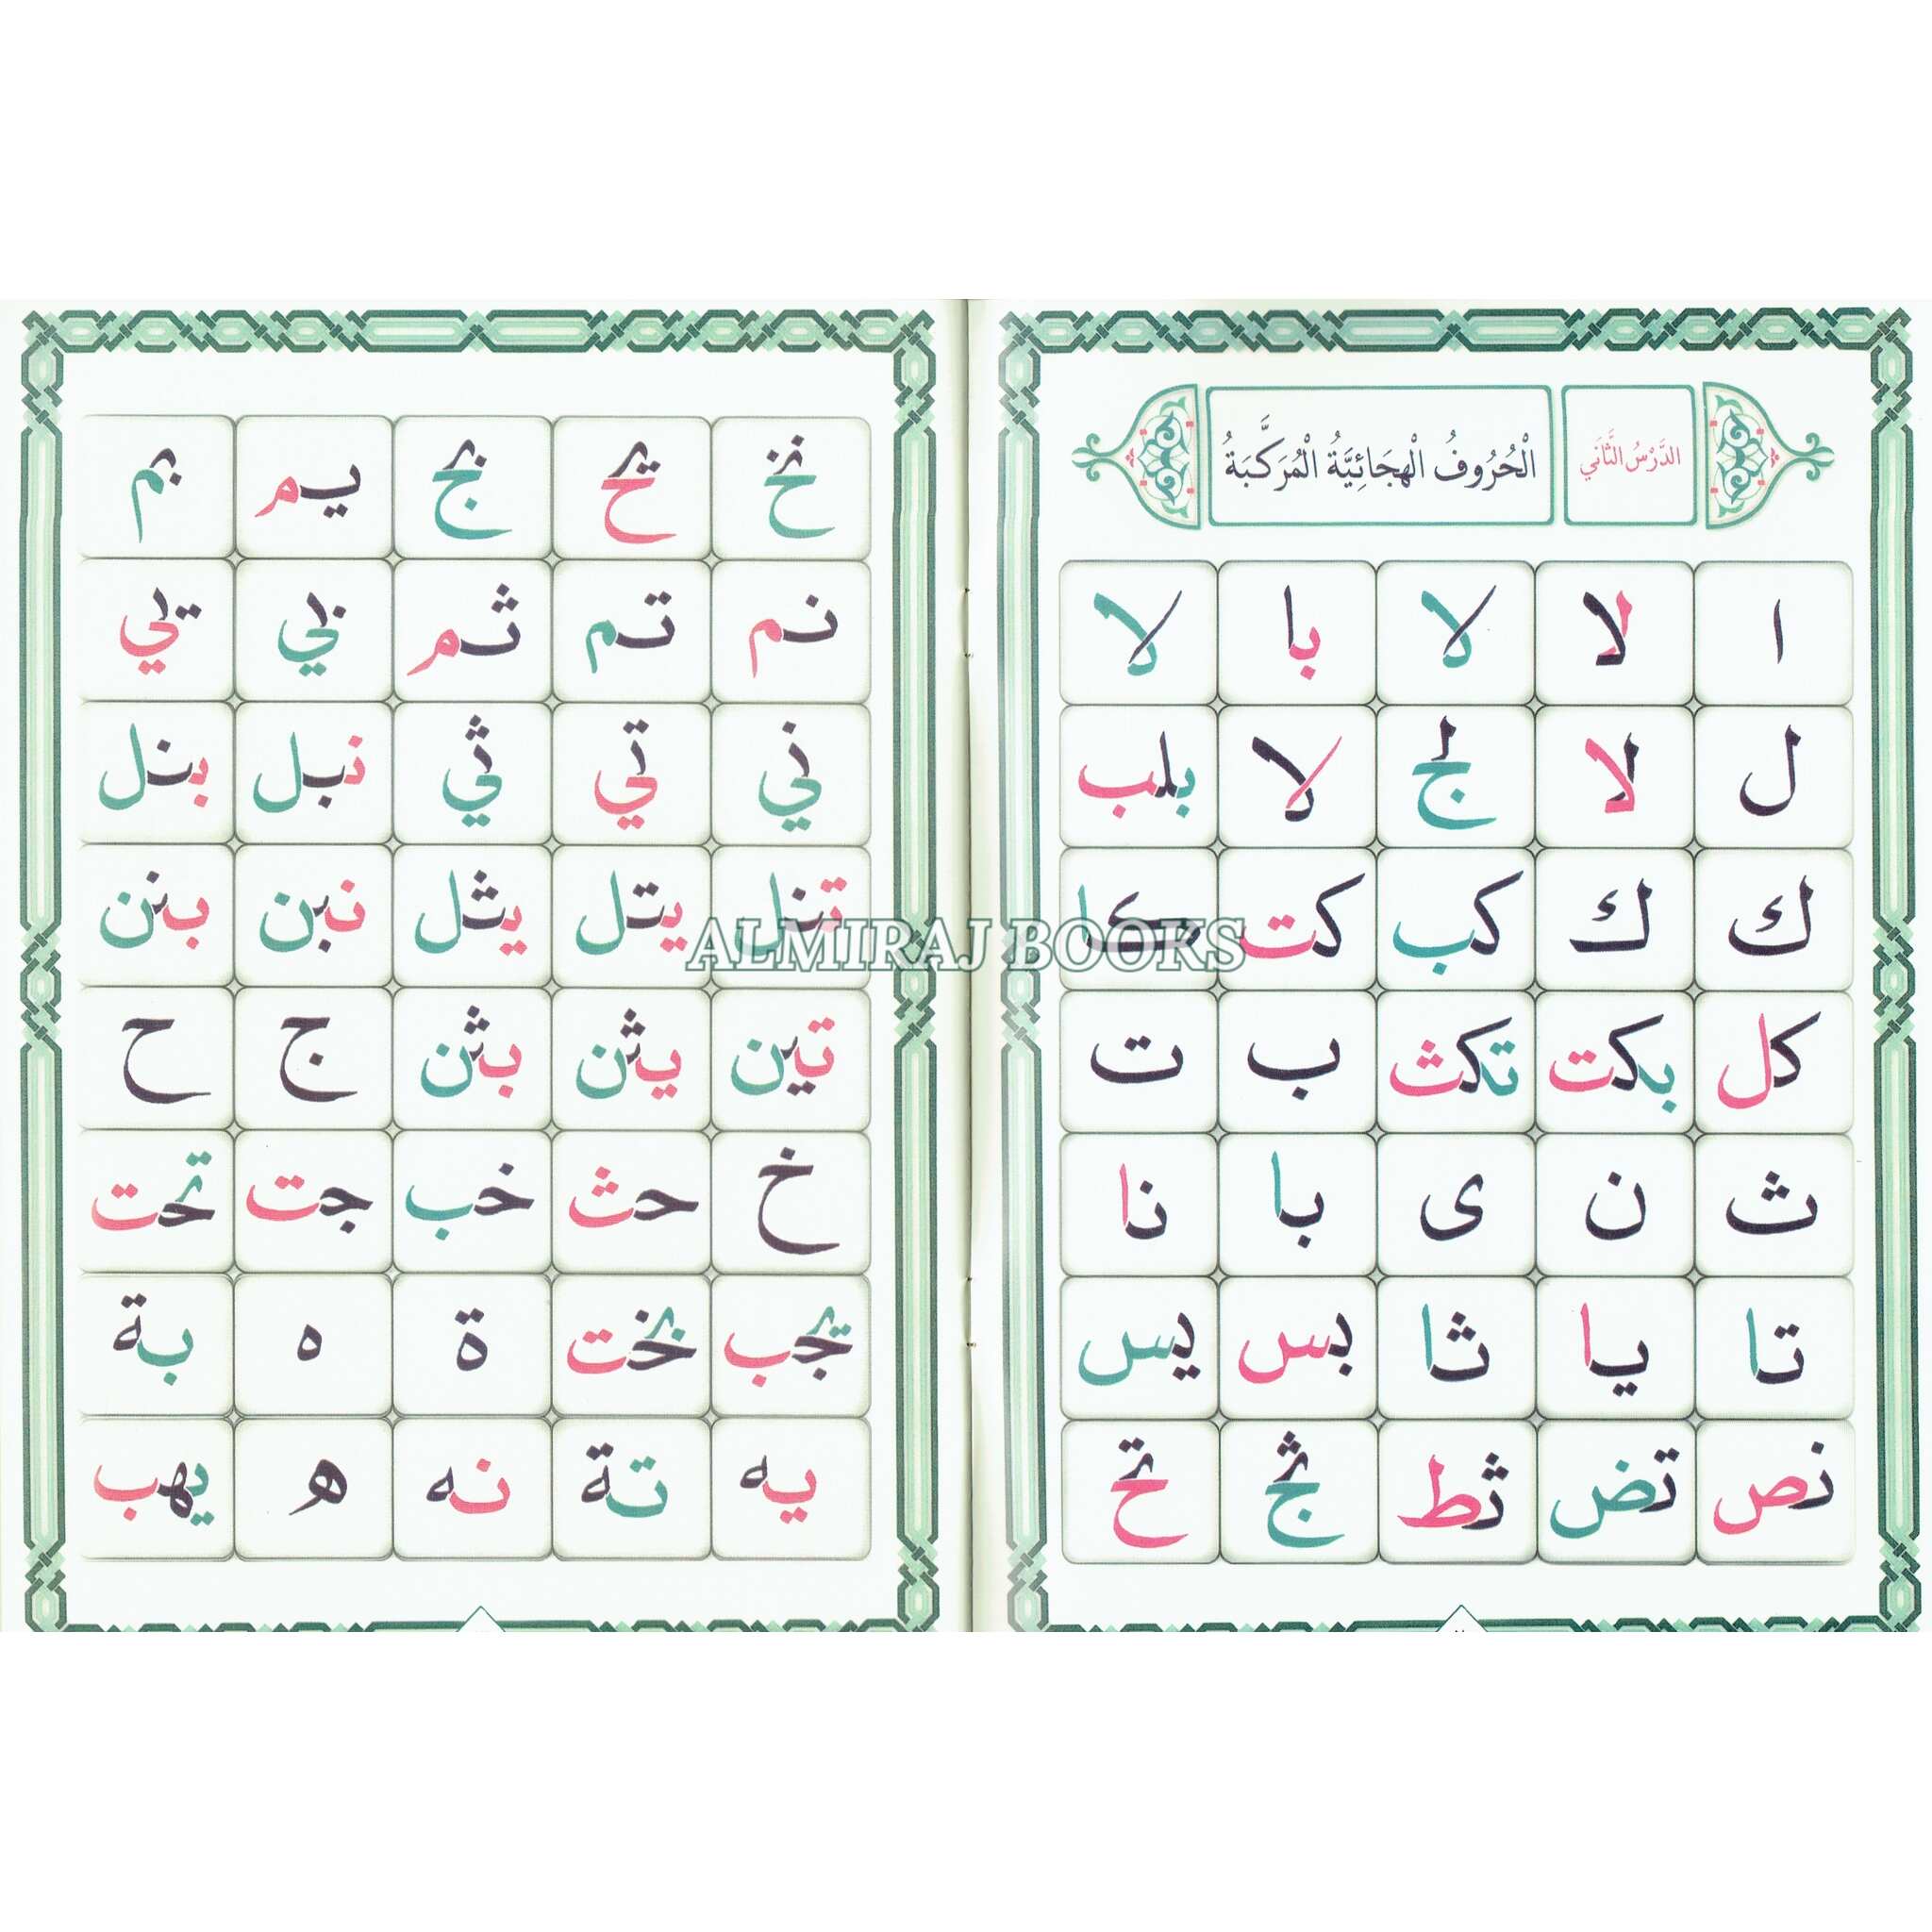 الدَّرْسُ الثَّانِي
الْحُرُوفُ الْهِجَائِيَّةُ الْمُرَكَّبَةُ
ا لا لا با لا
ل لا لج لا بلب
ك ك كب كت كا
كل بكت تكث ب ت
ث ن ى با نا
تا يا ثا بس يس
نص تض ثط ثج تح
نخ يح بج يم بم
نم تم ثم بي تي
ني تي ثي نبل بنل
تنل يتل يثل نبن بنن
تين يثن بثن ج ح
خ حث خب جت تحت
يجب بخت ة ه بة
يه تة نه ه يهب
ALMIRAJ BOOKS